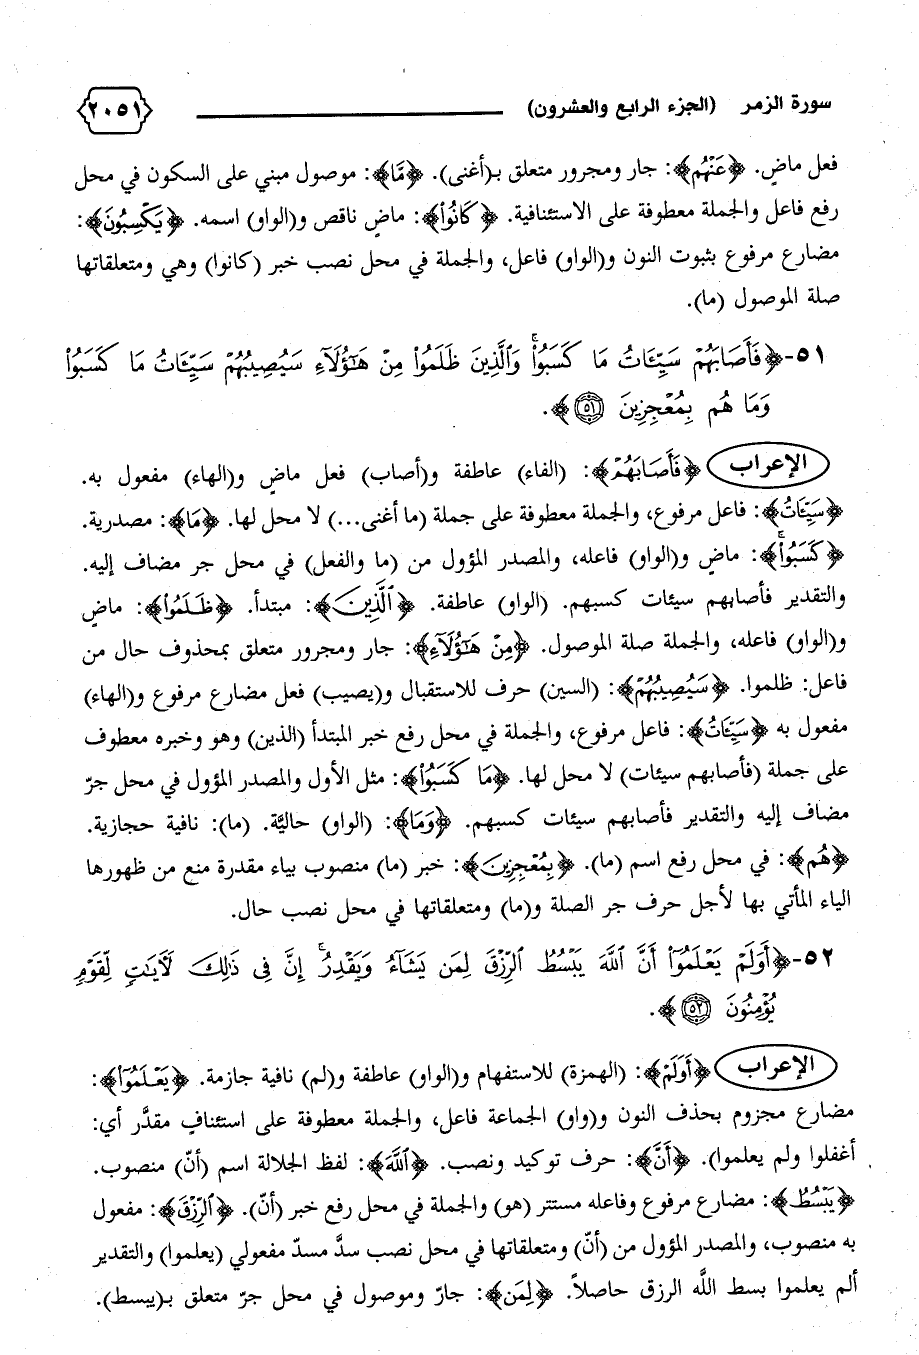 سورة الزمر (الجزء الرابع والعشرون) ٢٠٥١
فعل ماضٍ. ﴿عَنْهُم﴾: جار ومجرور متعلق بـ(أغنى). ﴿مَّا﴾: موصول مبني على السكون في محل
رفع فاعل والجملة معطوفة على الاستئنافية. ﴿كَانُوا۟﴾: ماض ناقص و(الواو) اسمه. ﴿يَكْسِبُونَ﴾:
مضارع مرفوع بثبوت النون و(الواو) فاعل، والجملة في محل نصب خبر (كانوا) وهي ومتعلقاتها
صلة الموصول (ما).
٥١- ﴿فَأَصَابَهُمْ سَيِّئَاتُ مَا كَسَبُوا۟ۚ وَٱلَّذِينَ ظَلَمُوا۟ مِنْ هَـٰٓؤُلَآءِ سَيُصِيبُهُمْ سَيِّئَاتُ مَا كَسَبُوا۟
وَمَا هُم بِمُعْجِزِينَ ٥١﴾.
الإعراب ﴿فَأَصَابَهُمْ﴾: (الفاء) عاطفة و(أصاب) فعل ماضٍ و(الهاء) مفعول به.
﴿سَيِّئَاتُ﴾: فاعل مرفوع، والجملة معطوفة على جملة (ما أغنى...) لا محل لها. ﴿مَا﴾: مصدرية.
﴿كَسَبُوا۟ۚ﴾: ماض و(الواو) فاعله، والمصدر المؤول من (ما والفعل) في محل جر مضاف إليه.
والتقدير فأصابهم سيئات كسبهم. (الواو) عاطفة. ﴿ٱلَّذِينَ﴾: مبتدأ. ﴿ظَلَمُوا۟﴾: ماض
و(الواو) فاعله، والجملة صلة الموصول. ﴿مِنْ هَـٰٓؤُلَآءِ﴾: جار ومجرور متعلق بمحذوف حال من
فاعل: ظلموا. ﴿سَيُصِيبُهُمْ﴾: (السين) حرف للاستقبال و(يصيب) فعل مضارع مرفوع و(الهاء)
مفعول به ﴿سَيِّئَاتُ﴾: فاعل مرفوع، والجملة في محل رفع خبر المبتدأ (الذين) وهو وخبره معطوف
على جملة (فأصابهم سيئات) لا محل لها. ﴿مَا كَسَبُوا۟﴾: مثل الأول والمصدر المؤول في محل جرّ
مضاف إليه والتقدير فأصابهم سيئات كسبهم. ﴿وَمَا﴾: (الواو) حاليَّة. (ما): نافية حجازية.
﴿هُم﴾: في محل رفع اسم (ما). ﴿بِمُعْجِزِينَ﴾: خبر (ما) منصوب بياء مقدرة منع من ظهورها
الياء المأتي بها لأجل حرف جر الصلة و(ما) ومتعلقاتها في محل نصب حال.
٥٢- ﴿أَوَلَمْ يَعْلَمُوٓا۟ أَنَّ ٱللَّهَ يَبْسُطُ ٱلرِّزْقَ لِمَن يَشَآءُ وَيَقْدِرُۚ إِنَّ فِى ذَٰلِكَ لَـَٔايَـٰتٍ لِّقَوْمٍ
يُؤْمِنُونَ ٥٢﴾.
الإعراب ﴿أَوَلَمْ﴾: (الهمزة) للاستفهام و(الواو) عاطفة و(لم) نافية جازمة. ﴿يَعْلَمُوٓا۟﴾:
مضارع مجزوم بحذف النون و(واو) الجماعة فاعل، والجملة معطوفة على استئنافٍ مقدَّر أي:
أغفلوا ولم يعلموا). ﴿أَنَّ﴾: حرف توكيد ونصب. ﴿ٱللَّهَ﴾: لفظ الجلالة اسم (أنّ) منصوب.
﴿يَبْسُطُ﴾: مضارع مرفوع وفاعله مستتر (هو) والجملة في محل رفع خبر (أنّ). ﴿ٱلرِّزْقَ﴾: مفعول
به منصوب، والمصدر المؤول من (أنّ) ومتعلقاتها في محل نصب سدَّ مسدّ مفعولي (يعلموا) والتقدير
ألم يعلموا بسط اللَّه الرزق حاصلاً. ﴿لِمَن﴾: جارّ وموصول في محل جرّ متعلق بـ(يبسط).